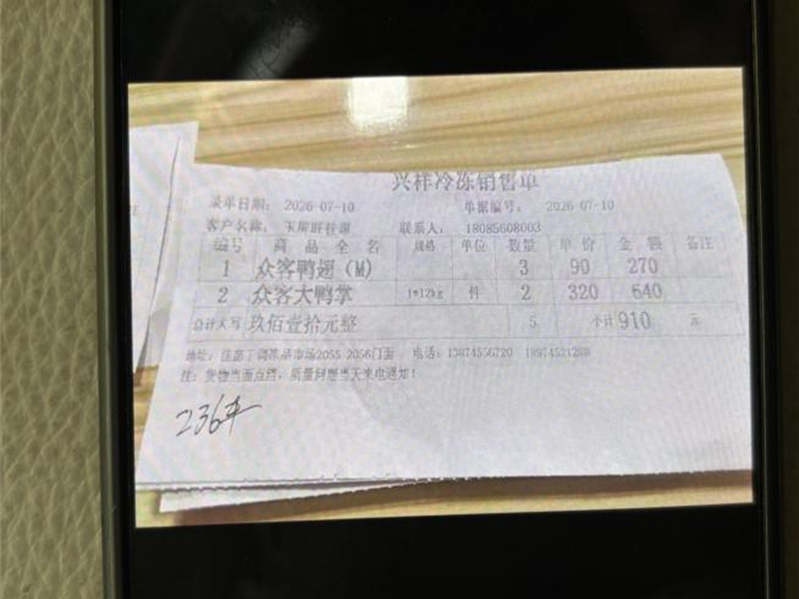 兴祥冷冻销售单
录单日期: 2026-07-10 单据编号: 2026-07-10
客户名称: 联系人: 18085608003
编号 商品全名 规格 单位 数量 单价 金额 备注
1 众客鸭翅（M） 3 90 270
2 众客大鸭掌 1*12kg 件 2 320 640
总计大写 玖佰壹拾元整 5 小计 910 元
地址: 市场2055 2056门面 电话:
注: 货物当面点清, 质量问题当天来电通知!
236